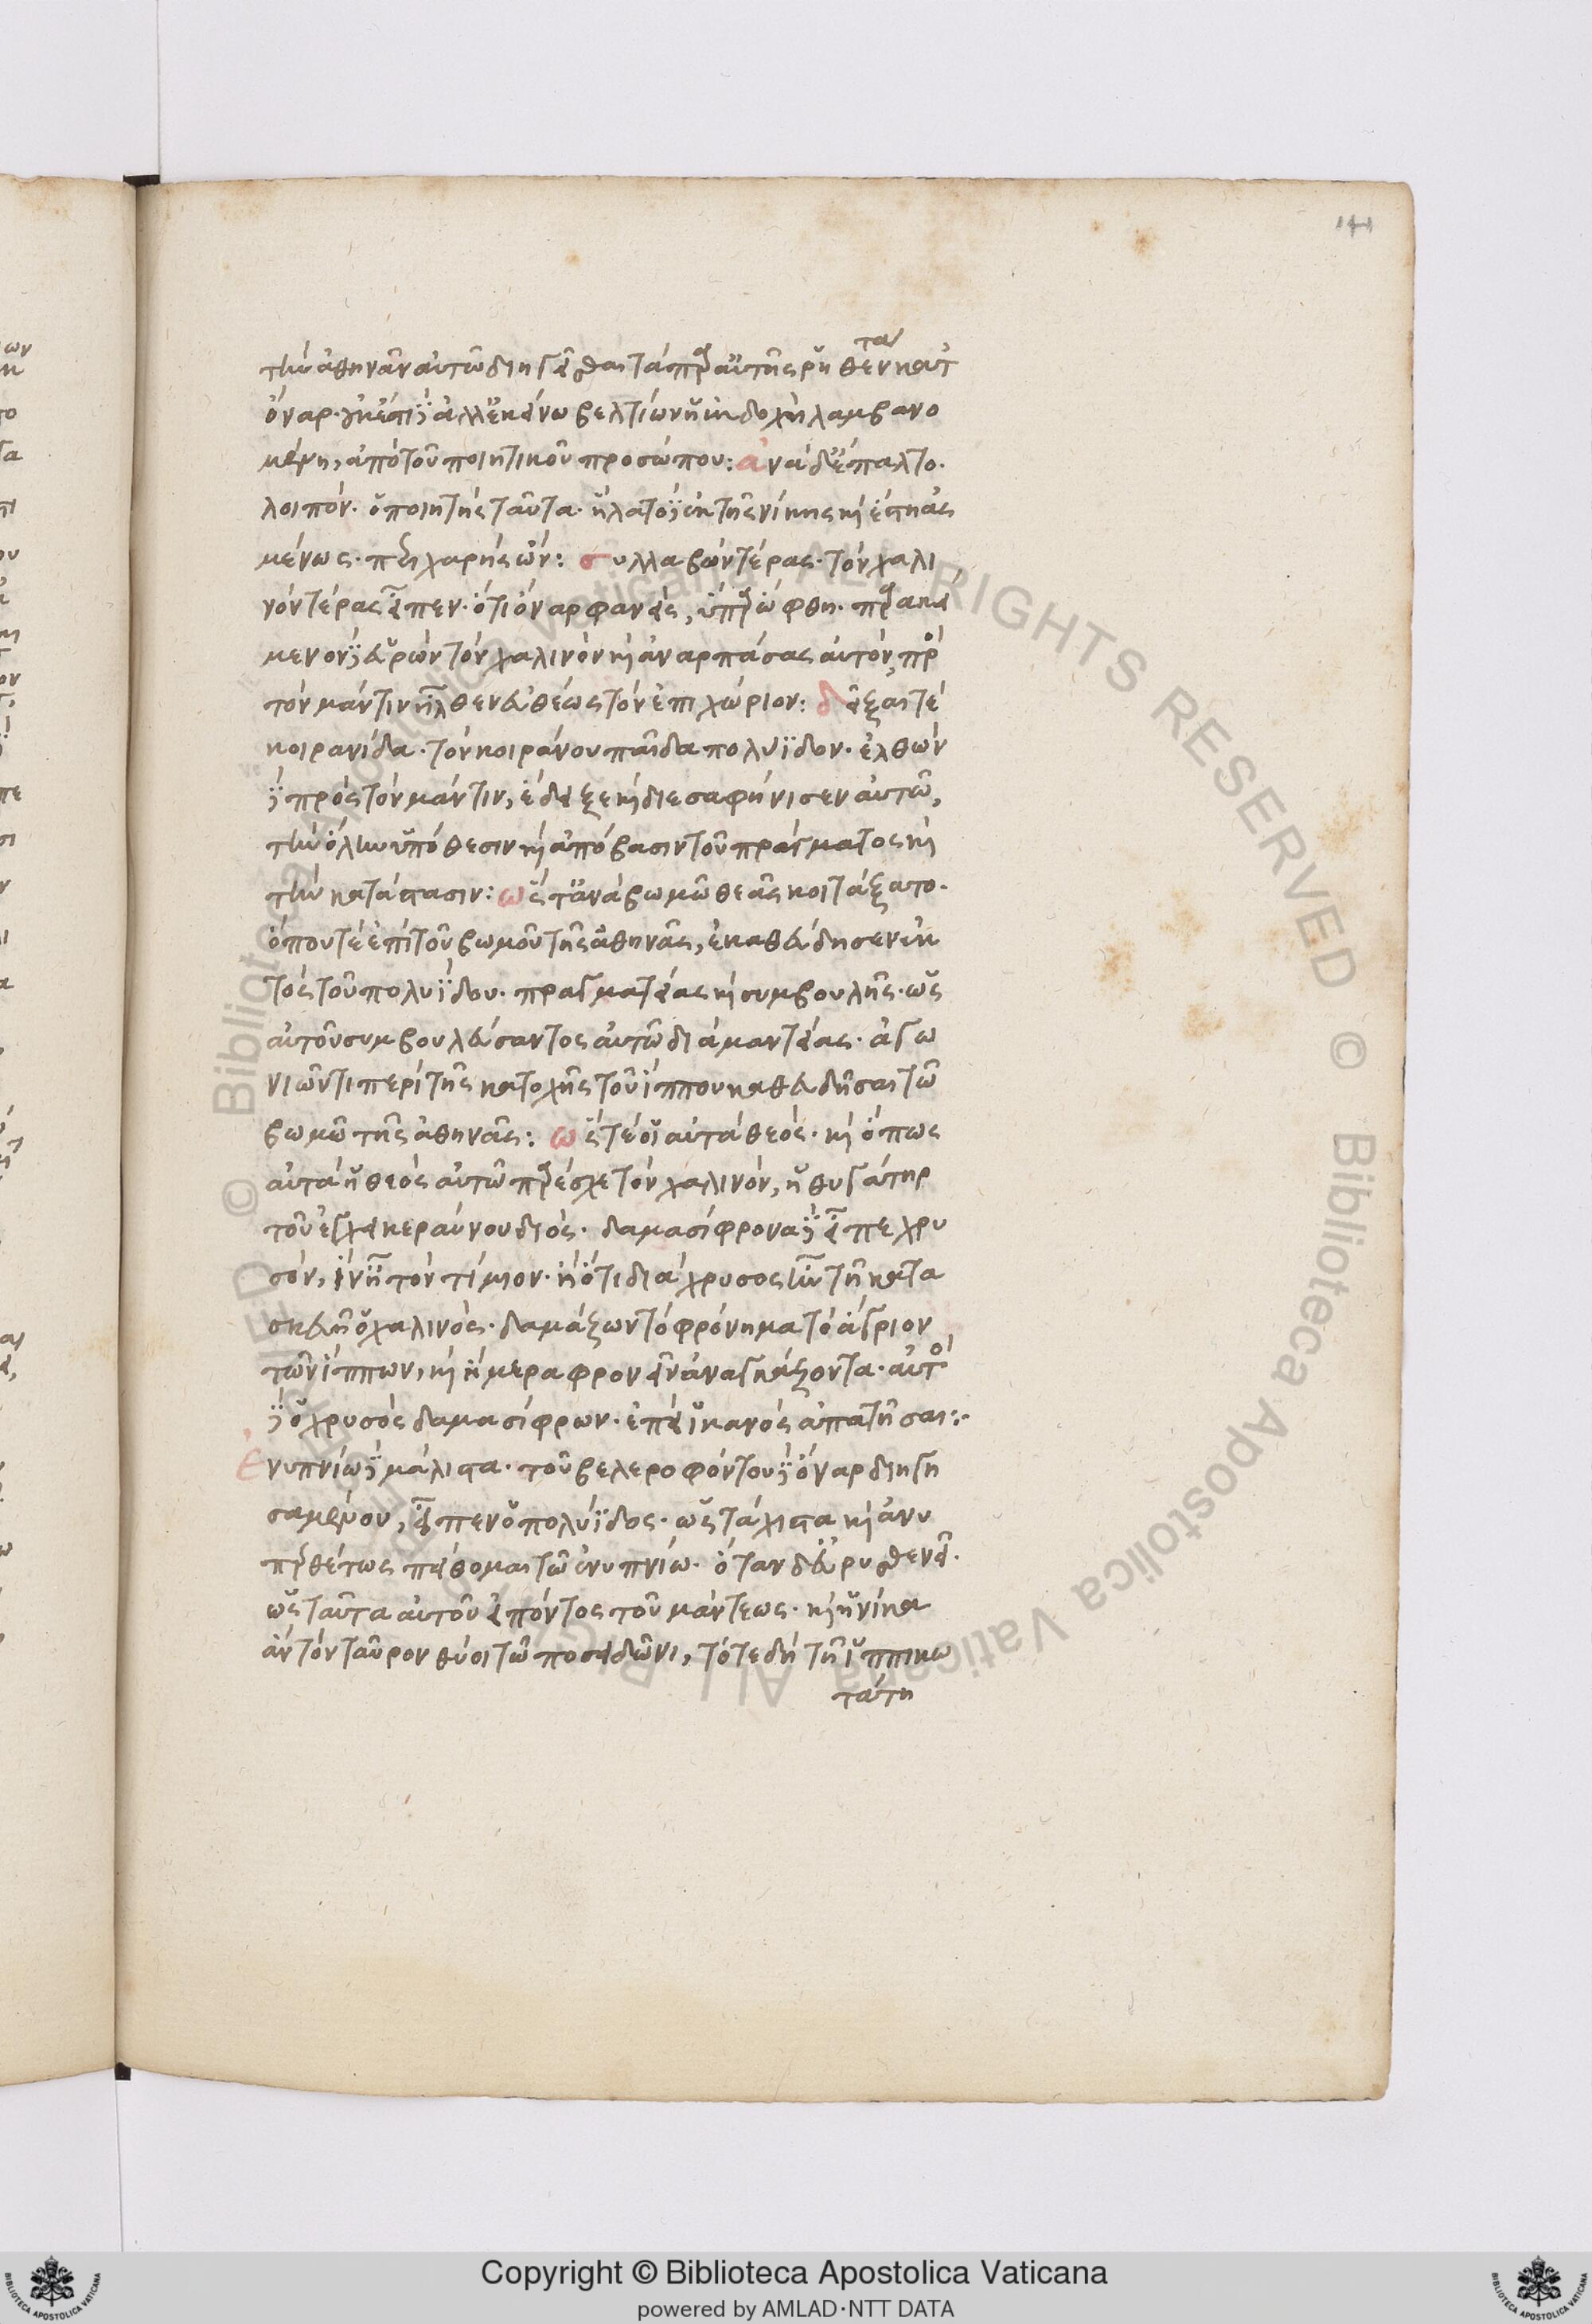 141
τὴν ἀθηνᾶν αὐτῶ διηγεῖσθαι τὰ παρ' αὐτῆς ῥηθέντα κατ'
ὄναρ· γὰρ ἀλλ' ἐκείνω βελτίων ἡ ἐκδοχὴ λαμβανο
μένη, ἀπὸ τοῦ ποιητικοῦ προσώπου: ἀνὰ δ' ἔπαλτο.
λοιπόν. ὁ ποιητὴς ταῦτα· ἥλατο δὲ ἐκ τῆς κοίτης καὶ ἔστη ἀς
μένως· περιχαρὴς ὤν: συλλαβὼν τέρας· τὸν χαλι
νὸν τέρας εἶπεν· ὅτι ὄναρ φανεὶς, ὕπαρ ὤφθη. παρακεί
μενον δὲ εὑρὼν τὸν χαλινὸν καὶ ἀναρπάσας αὐτὸν, πρὸς
τὸν μάντιν ἦλθεν εὐθέως τὸν ἐπιχώριον: δεῖξαί τε
κοιρανίδα· τὸν κοιράνου παῖδα πολυΐδον. ἐλθὼν
δὲ πρὸς τὸν μάντιν, ἔδειξε καὶ διεσαφήνισεν αὐτῶ,
τὴν ὅλην ὑπόθεσιν καὶ ἀπόβασιν τοῦ πράγματος καὶ
τὴν κατάστασιν: ὥς τ' ἀνὰ βωμῶ θεᾶς κοιτάξατο.
ὅπου τὲ ἐπὶ τοῦ βωμοῦ τῆς ἀθηνᾶς, ἐκαθεύδησεν ἐκ
τὸς τοῦ πολυΐδου· πραγματείας καὶ συμβουλῆς· ὡς
αὐτοῦ συμβουλεύσαντος αὐτῶ διὰ μαντείας· ἀγω
νιῶντι περὶ τῆς κατοχῆς τοῦ ἵππου καθευδῆσαι τῶ
βωμῶ τῆς ἀθηνᾶς: ὥς τέ οἱ αὐτὰ θεός· καὶ ὅπως
αὐτὰ ἡ θεὸς αὐτῶ παρέσχε τὸν χαλινὸν, ἡ θυγάτηρ
τοῦ ἐγχεικεραύνου διός· δαμασίφρονα δὲ εἶπε χρυ
σόν, τὸν τίμιον· ἢ ὅτι διάχρυσος ἦν τῆ κατα
σκευῆ ὁ χαλινός· δαμάζων τὸ φρόνημα τὸ ἄγριον
τῶν ἵππων, καὶ ἥμερα φρονεῖν ἀναγκάζοντα· αὐτὸς
δὲ ὁ χρυσὸς δαμασίφρων· ἐπεὶ ἱκανὸς ἀπατῆσαι:
Ἐνυπνίω δὲ μάλιστα· τοῦ βελεροφόντου δὲ ὄναρ διηγη
σαμένου, εἶπεν ὁ πολύϊδος· ὡς τάχιστα καὶ ἀνυ
περθέτως πείθομαι τῶ ἐνυπνίω. ὅταν δ' εὐρυσθενεῖ.
ὡς ταῦτα αὐτοῦ εἰπόντος τοῦ μάντεως· καὶ ἡνίκα
ἂν τὸν ταῦρον θύοι τῶ ποσειδῶνι, τότε δὴ τῆ ἱππικω
τάτη
Copyright © Biblioteca Apostolica Vaticana
powered by AMLAD·NTT DATA